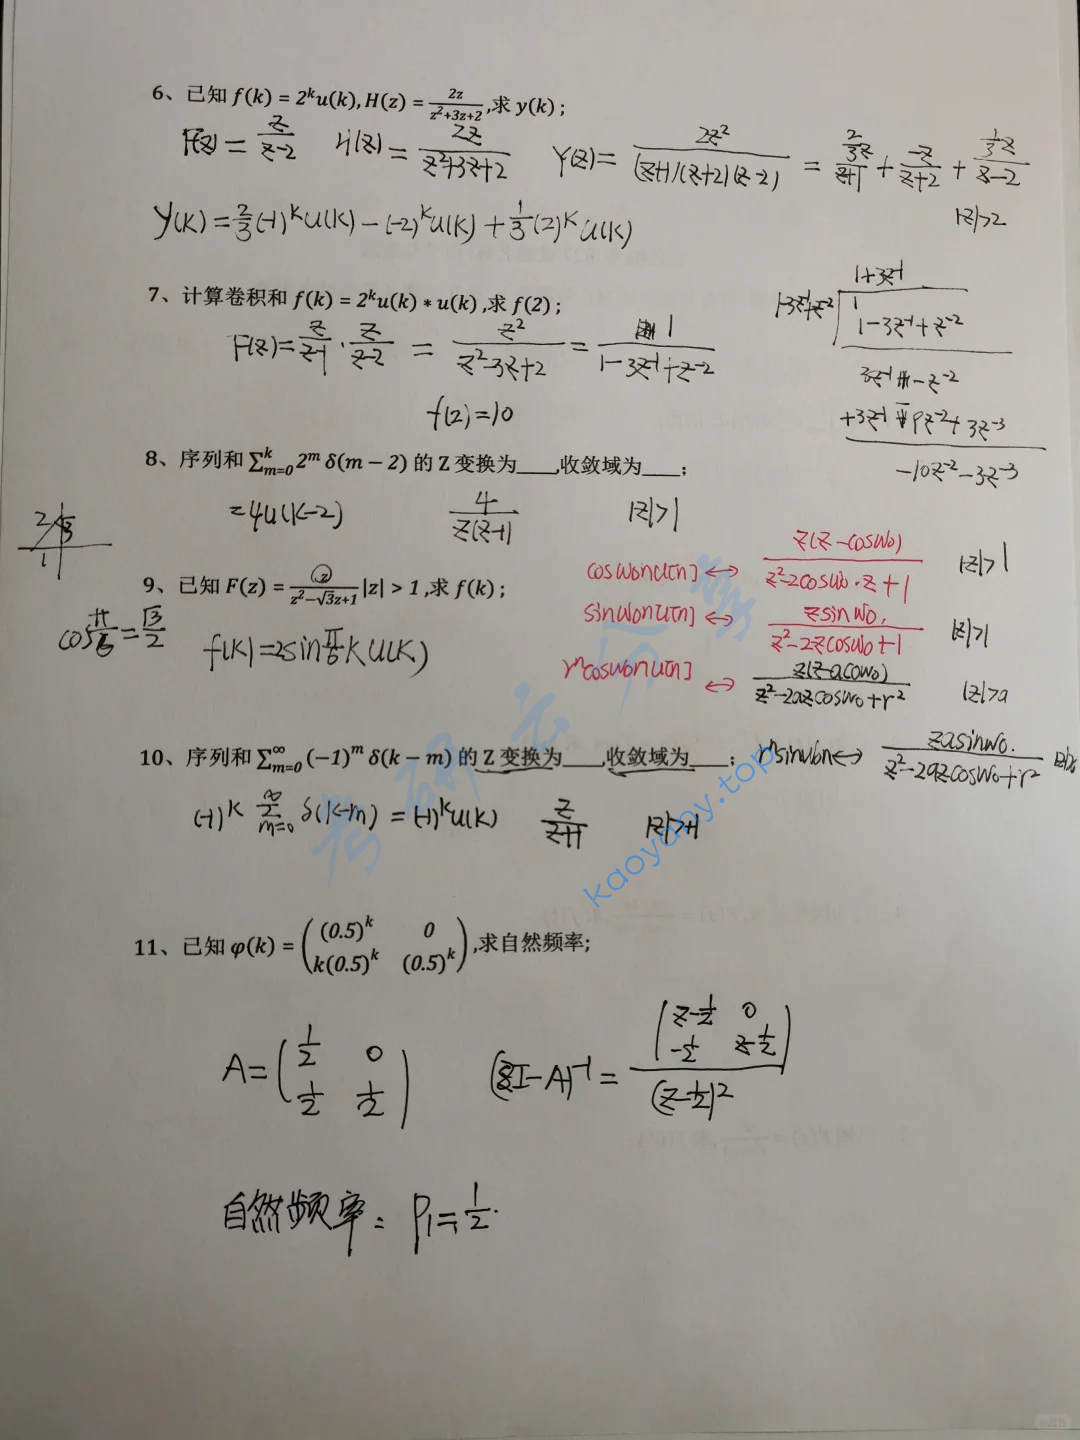 6、已知 f(k) = 2^k u(k), H(z) = 2z/(z²+3z+2) ,求 y(k) ;
F(z) = z/(z-2)  H(z) = 2z/(z²+3z+2)  Y(z) = 2z²/((z+1)(z+2)(z-2)) = (2/3 z)/(z+1) + (-z)/(z+2) + (1/3 z)/(z-2)
|z|>2
y(k) = 2/3(-1)^k u(k) - (-2)^k u(k) + 1/3(2)^k u(k)
7、计算卷积和 f(k) = 2^k u(k) * u(k) ,求 f(2) ;
F(z) = z/(z-1) · z/(z-2) = z²/(z²-3z+2) = 1/(1-3z⁻¹+z⁻²)
f(2)=10
1+3z⁻¹
1-3z⁻¹+z⁻²
1
1-3z⁻¹+z⁻²
3z⁻¹ - z⁻²
+3z⁻¹ - 9z⁻² + 3z⁻³
-10z⁻² - 3z⁻³
8、序列和 ∑_{m=0}^{k} 2^m δ(m − 2) 的 Z 变换为____,收敛域为____;
=4u(k-2)  4/(z(z-1))  |z|>1
9、已知 F(z) = z/(z²−√3z+1) |z| > 1 ,求 f(k) ;
cos π/6 = √3/2
f(k)=2sin π/6 k u(k)
cosω₀n u[n] ↔ z(z-cosω₀)/(z²-2cosω₀·z+1)  |z|>1
sinω₀n u[n] ↔ zsinω₀/(z²-2zcosω₀+1)  |z|>1
rⁿcosω₀n u[n] ↔ z(z-acosω₀)/(z²-2azcosω₀+r²)  |z|>a
10、序列和 ∑_{m=0}^{∞} (−1)^m δ(k − m) 的 Z 变换为____,收敛域为____;
rⁿsinω₀n ↔ zasinω₀/(z²-2azcosω₀+r²)
(-1)^k ∑_{m=0}^{∞} δ(k-m) = (-1)^k u(k)  z/(z+1)  |z|>1
11、已知 φ(k) = ( (0.5)^k  0 ; k(0.5)^k  (0.5)^k ) ,求自然频率;
A = ( 1/2  0 ; 1/2  1/2 )  (zI-A)⁻¹ = ( z-1/2  0 ; -1/2  z-1/2 )/(z-1/2)²
自然频率: P₁=1/2.
考研云分享
kaoyany.top